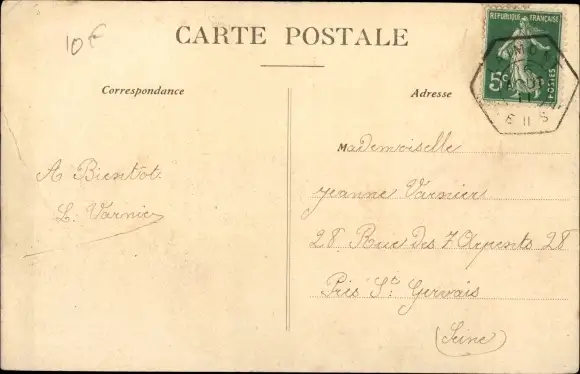 10F
CARTE POSTALE
RÉPUBLIQUE FRANÇAISE
5c
POSTES
Correspondance
Adresse
A Bientôt
L. Varnier
Mademoiselle
Jeanne Varnier
28 Rue Des 7 Arpents 28
Près St. Gervais
(Seine)